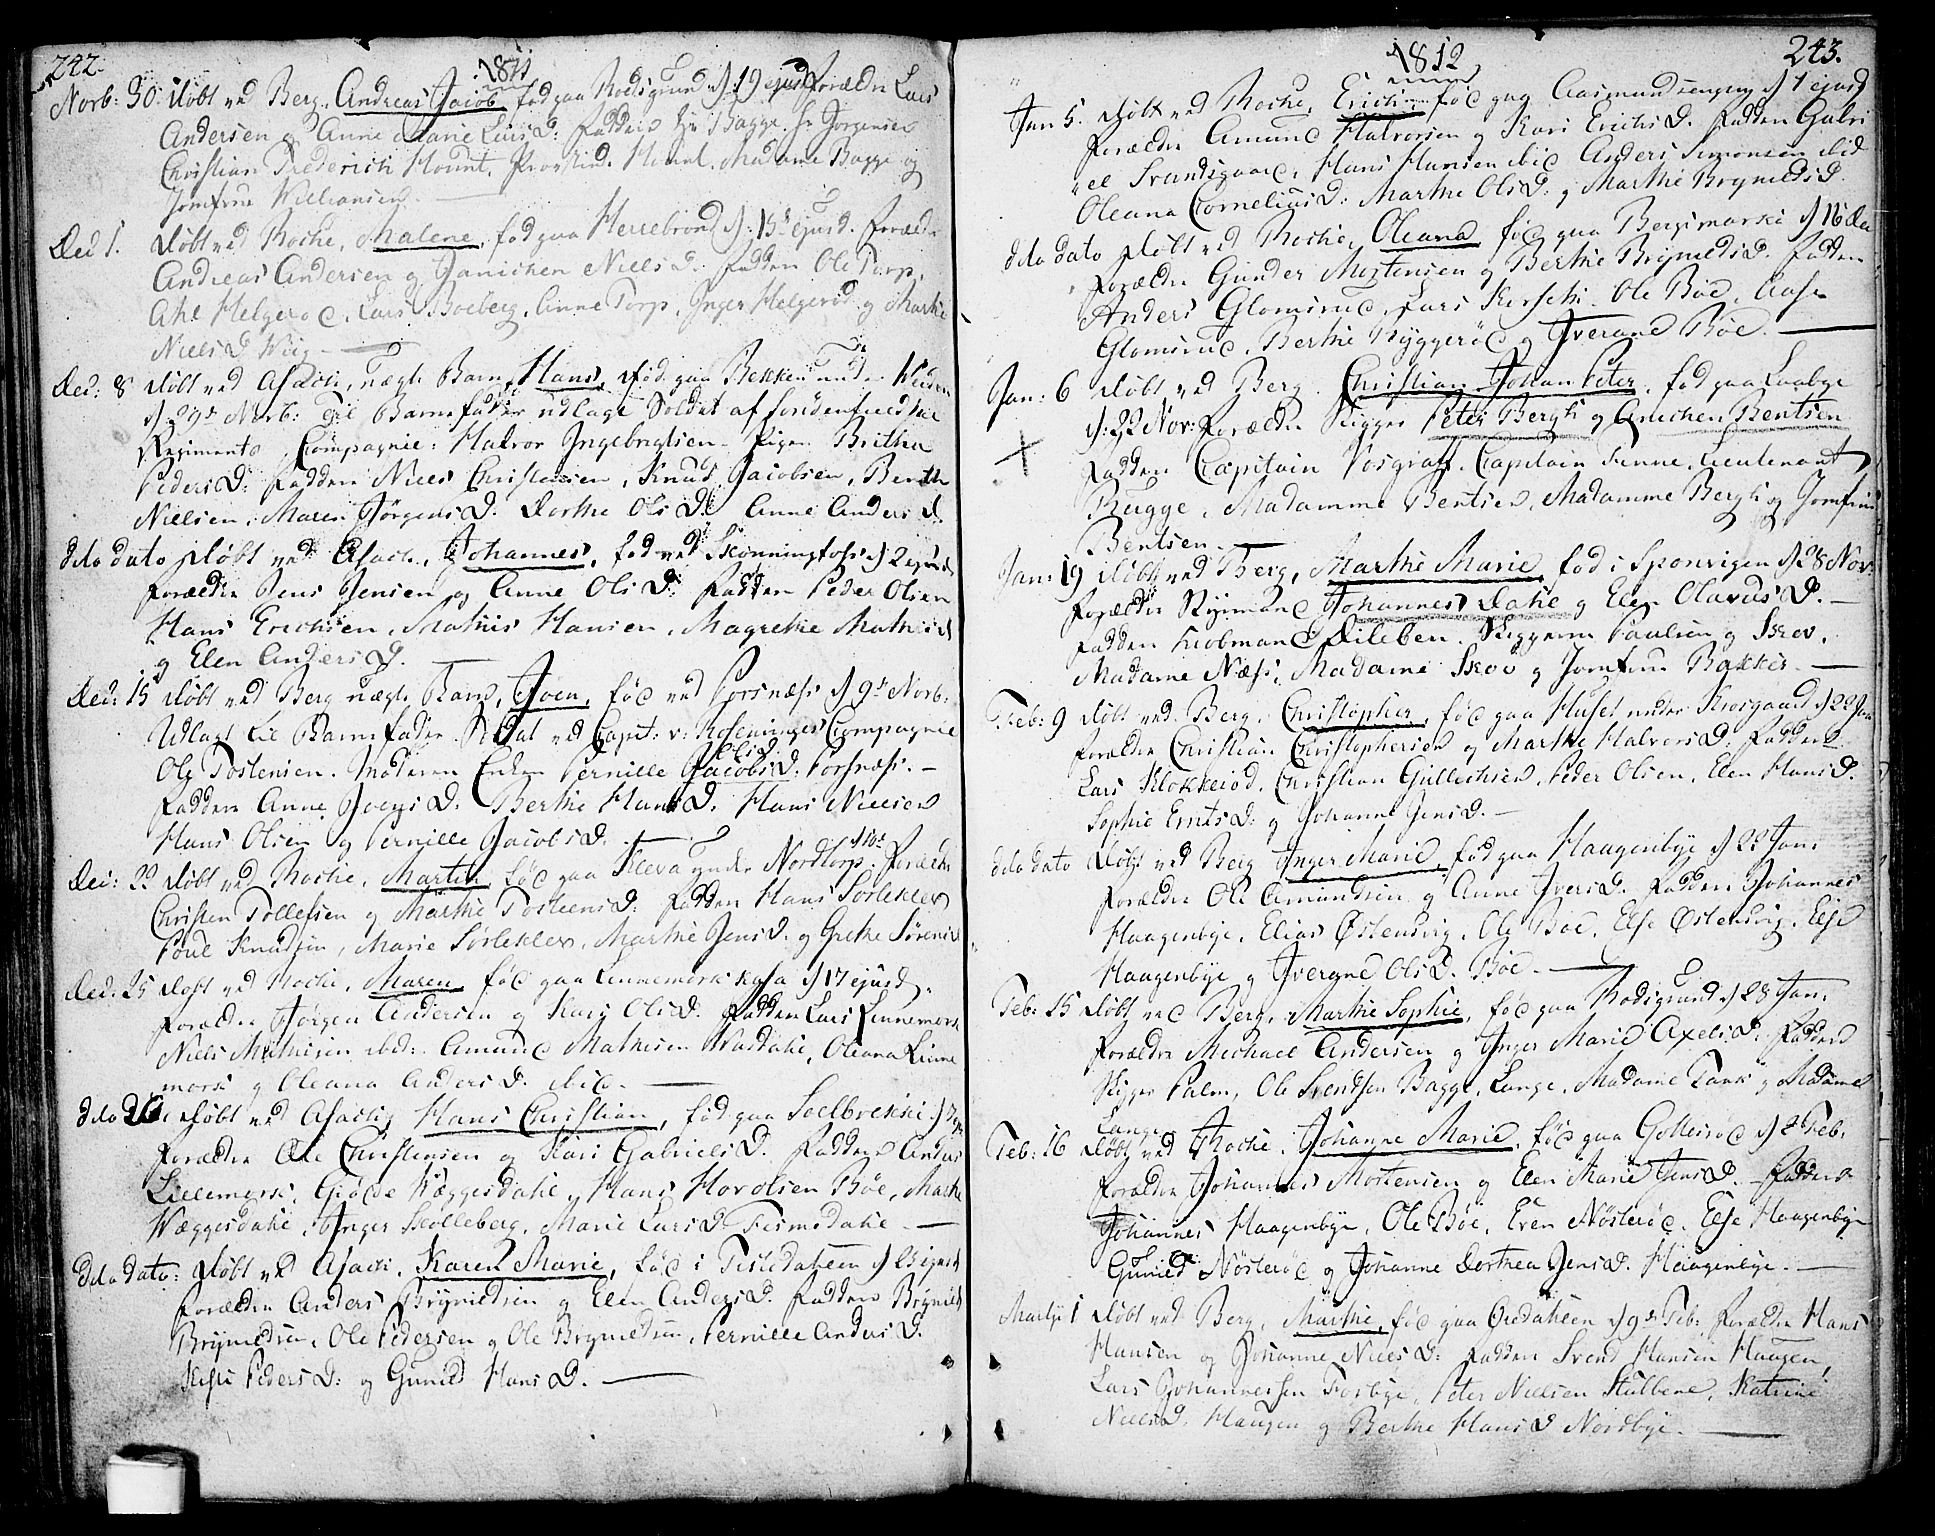 242.
1811
Novb: 30. Døbt ved Berg, Andreas Jacob, fød paa Rødsgrund d 19 ejusd Forældre Lars
Andersen og Anne Marie Lars D: Faddere Hr Bagge, Hr Jørgensen
Christian Frederich Hount, Provstind. Hount, Madame Bagge og
Jomfrue Willumsen.
Dec 1. Døbt ved Rocke, Malene, fød paa Herrebrønd d: 15 ejusd. Forældre
Andreas Andersen og Janichen Niels D. Faddere Ole Torp,
Ahl Helgerød, Lars Boeberg, Anne Torp, Inger Helgerød og Marthe
Niels D Wiig
Dec: 8 Døbt ved Asach, uægte Barn, Hans, fød paa Bekken under
d 29de Novb: Til Barnefader udlagt Soldat af Søndenfieldske
Regiments Compagnie: Halvor Ingebrigtsen. Pigen Britha
Peders D: Faddere Niels Christensen, Knud Jacobsen, Bernth
Nielsen, Maren Jørgens D. Dorthe Ols D. Anne Anders D.
dito dato Døbt ved Asach, Johannes, fød ved Skonningfoss d 2 ejusd
Forældre Jens Jensen og Anne Ols D. Faddere Peder Olsen
Hans Erichsen, Mathis Hansen, Magrethe Mathis D
og Elen Anders D.
Dec: 15 Døbt ved Berg uægte Barn, Joen, fød ved Porsnæss d 9de Novb:
Udlagt til Barnefader Soldat ved Capt: v: Roseninges Compagnie
Ole Tostensen. Moderen Enken Pernille Jacobs D. Porsnæss.
Faddere Anne Joens D: Berthe Hans D. Hans Nielsen
Hans Olsen og Pernille Jacobs D.
Dec: 22 Døbt ved Rocke, Marten, fød paa Kleva under Nordtorp. Forældre
Christen Tollefsen og Marthe Tostens D: Faddere Hans Sørleklev
Poul Knudsen, Marie Sørleklev, Marthe Jens D. og Grethe Sørens D
Dec: 25 Døbt ved Rocke, Maren, fød paa Linnemork kasa d 17 ejusd.
Forældre Jørgen Andersen og Kari Ols D. Faddere Lars Linnemork
Niels Mathisen ibid: Amund Mathisen Wasdahl, Oleana Linne
mork og Oleana Anders D. ibid.
dito 26 Døbt ved Asach, Hans Christian, fød paa Soelbrekke d
Forældre Ole Christensen og Kari Gabriels D. Faddere Anders
Lillemork, Giøde Wæggesdahl, Hans Hovolsen Bøe, Marthe
Wæggesdahl, Inger Skolleberg, Marie Lars D. Fismedahl
dito dato: Døbt ved Asach, Karen Marie, fød i Tistedahlen d ejusd
Forældre Anders Brynildsen og Elen Anders D. Faddere Brynild
Brynildsen, Ole Pedersen og Ole Brynildsen, Pernille Anders D.
Kisti Peders D: og Gunild Hans D.
1812
243.
Jan 5. Døbt ved Rocke, Erich, fød paa Aasmundrengen d 1 ejusd
Forældre Amund Halvorsen og Kari Erichs D. Faddere Gabri
el Svendsgaard, Hans Hansen ibid Anders Simonsen ibid
Oleana Cornelius D: Marthe Ols D: og Marthe Brynilds D.
dito dato Døbt ved Rocke, Oleana, fød paa Bergsmarke d 16 Dec
Forældre Gunder Mortensen og Berthe Brynilds D. Faddere
Anders Glomsrud, Lars Kirseth, Ole Bøe, Aase
Glomsrud, Berthe Byggerød og Iverane Bøe.
Jan: 6 Døbt ved Berg Christian Johan Peter, fød paa Laabye
d: 22 Nov: Forældre Skipper Peter Bergh og Anichen Bentsen
Faddere Capitain Vosgraff, Capitain Finne, Lieutenant
Bugge, Madamme Bentsen, Madamme Bergh og Jomfrue
Bentsen.
Jan: 19 Døbt ved Berg, Marthe Marie, fød i Sponvigen d 28 Nov:
Forældre Styrmand Johannes Dahl og Elen Olavus D.
Faddere Kiøbmand Dileben, Skipperne Paulsen og Skov,
Madame Næss, Madame Skov og Jomfrue Bakker.
Feb: 9 Døbt ved Berg, Christopher, fød paa Huset under Kiosgaard d 22 Jan
Forældre Christian Christophersen og Marthe Halvors D: Faddere
Lars Klokkerød, Christian Gullichsen, Peder Olsen, Elen Hans D.
Sophie Ernts D: og Johanne Jens D.
dito dato Døbt ved Berg Inger Marie, fød paa Haagenbye d 22 Jan:
Forældre Ole Amundsen og Anne Ivers D. Faddere Johannes
Haagenbye, Elias Østensvig, Ole Bøe, Else Østensvig, Else
Haagenbye og Iverane Ols D. Bøe.
Feb: 15 Døbt ved Berg, Marthe Sophie, fød paa Rødsgrund d 28 Jan:
Forældre Michael Andersen og Inger Marie Axels D: Faddere
Skipper Palm, Ole Svendsen Bagge, Lange, Madame Tank og Madame
Lange.
Feb: 16 Døbt ved Rocke, Johanne Marie, fød paa Gollerød d 2 Feb:
Forældre Johannes Mortensen og Elen Marie Jens D. Faddere
Johannes Haagenbye, Ole Bøe, Even Nøsterød, Else Haagenbye
Gunild Nøsterød og Johanne Dorthea Jens D. Haagenbye.
Martij 1 Døbt ved Berg, Marthe, fød paa Gudahlen d 9de Feb: Forældre Hans
Hansen og Johanne Niels D: Faddere Svend Hansen Haugen,
Lars Johannessen Fosbye, Peter Nielsen Stubbene, Katrine
Niels D. Haugen og Berthe Hans D Nordbye.